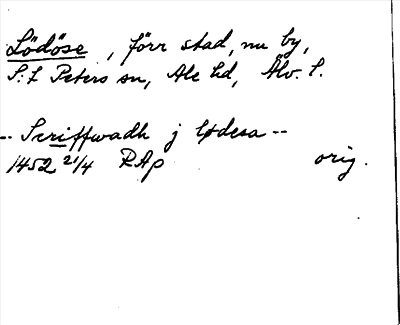 Lödöse, förr stad, nu by,
S:t Peters sn, Ale hd, Älv. l.
-- Scriffwadh j lødesa --
1452 21/4 RAp orig.